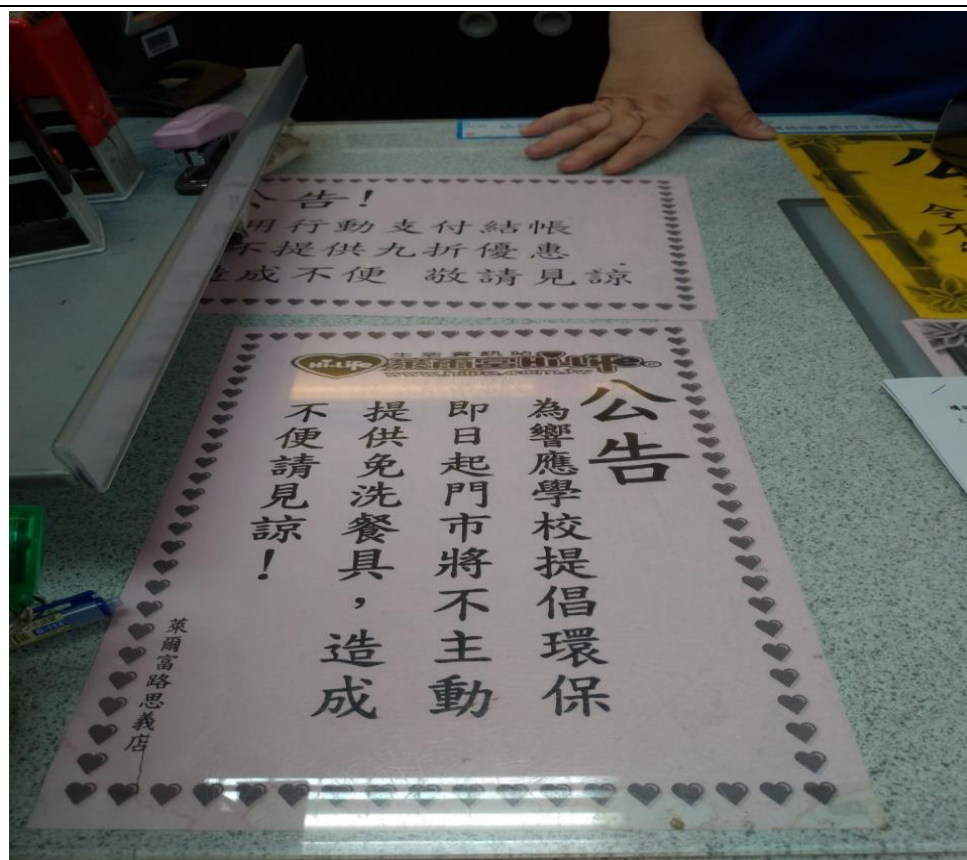 公告!
用行動支付結帳
不提供九折優惠
造成不便 敬請見諒
生活資訊站
Hi-Life
萊爾富Hi-Life
www.hilife.com.tw
公告
為響應學校提倡環保
即日起門市將不主動
提供免洗餐具，造成
不便請見諒！
萊爾富路思義店